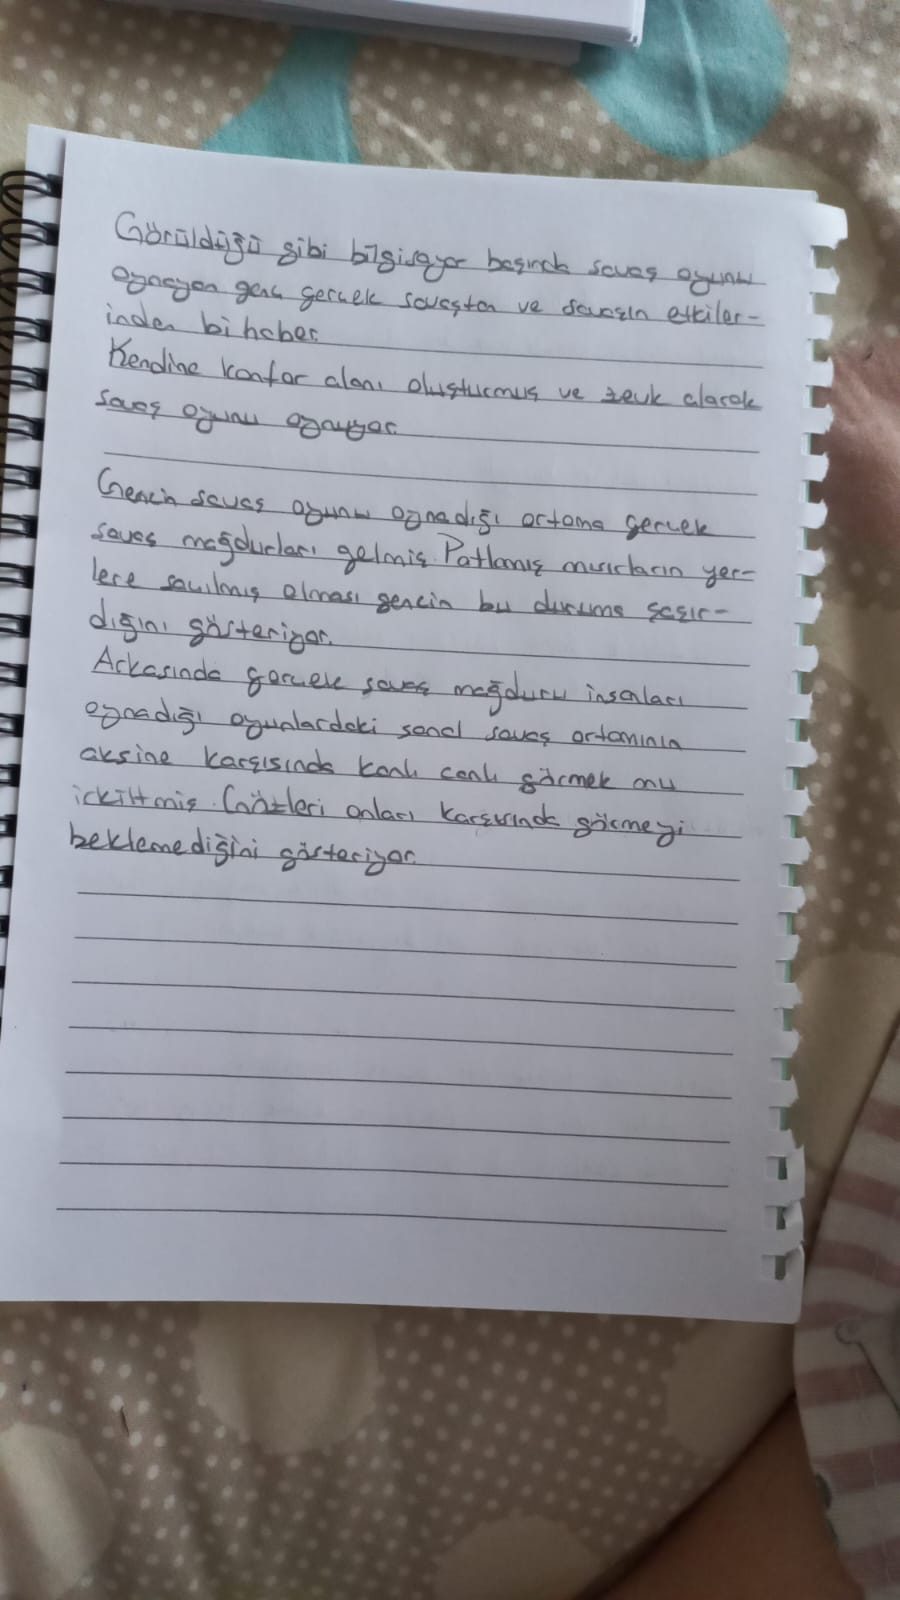 Görüldüğü gibi bilgisayar başında savaş oyunu
oynayan genç gerçek savaştan ve savaşın etkiler-
inden bi haber.
Kendine konfor alanı oluşturmuş ve zevk alarak
savaş oyunu oynuyor.
Gencin savaş oyunu oynadığı ortama gerçek
savaş mağdurları gelmiş. Patlamış mısırların yer-
lere saçılmış olması gencin bu duruma şaşır-
dığını gösteriyor.
Arkasında gerçek savaş mağduru insanları
oynadığı oyunlardaki sanal savaş ortamının
aksine karşısında kanlı canlı görmek onu
irkiltmiş. Gözleri onları karşısında görmeyi
beklemediğini gösteriyor.